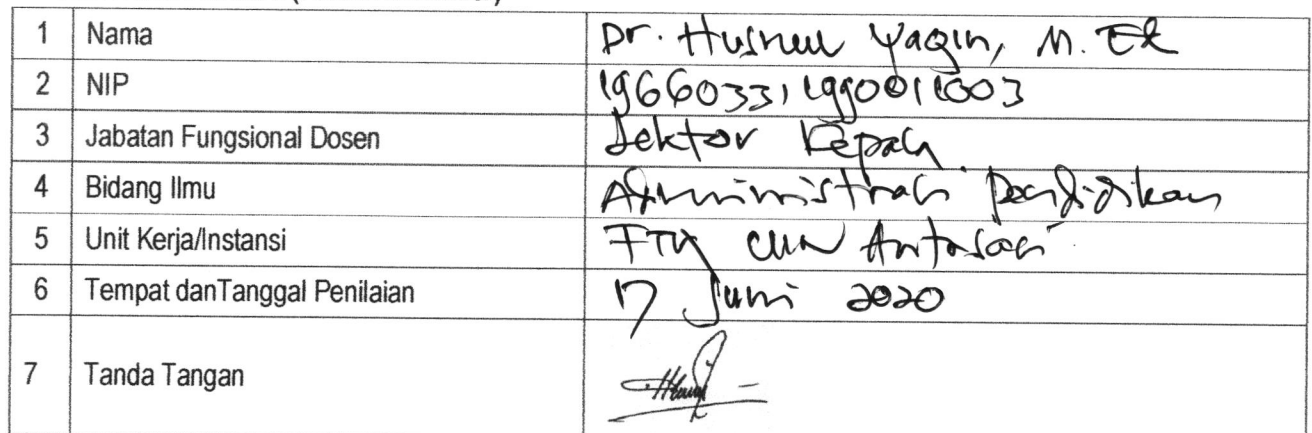 1 Nama Dr. Husnul Yaqin, M. Ed
2 NIP 196603311990011003
3 Jabatan Fungsional Dosen Lektor Kepala
4 Bidang Ilmu Administrasi Pendidikan
5 Unit Kerja/Instansi FTK UIN Antasari
6 Tempat danTanggal Penilaian 17 Juni 2020
7 Tanda Tangan